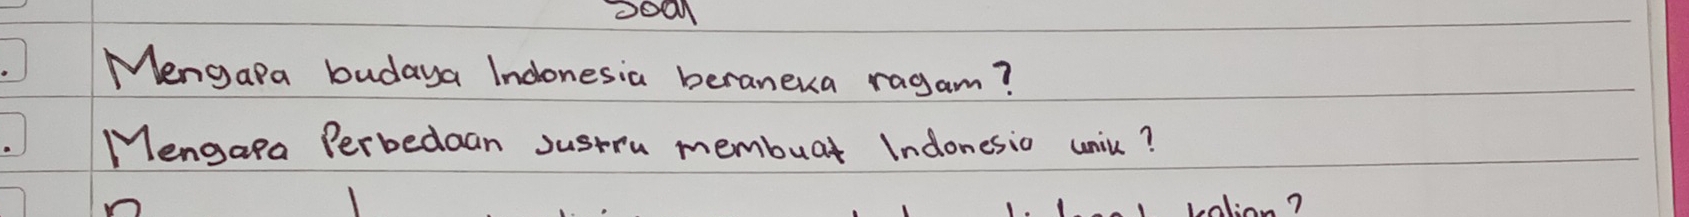 Soal
Mengapa budaya Indonesia beraneka ragam?
Mengapa Perbedaan Justru membuat Indonesia unik?
kalian?